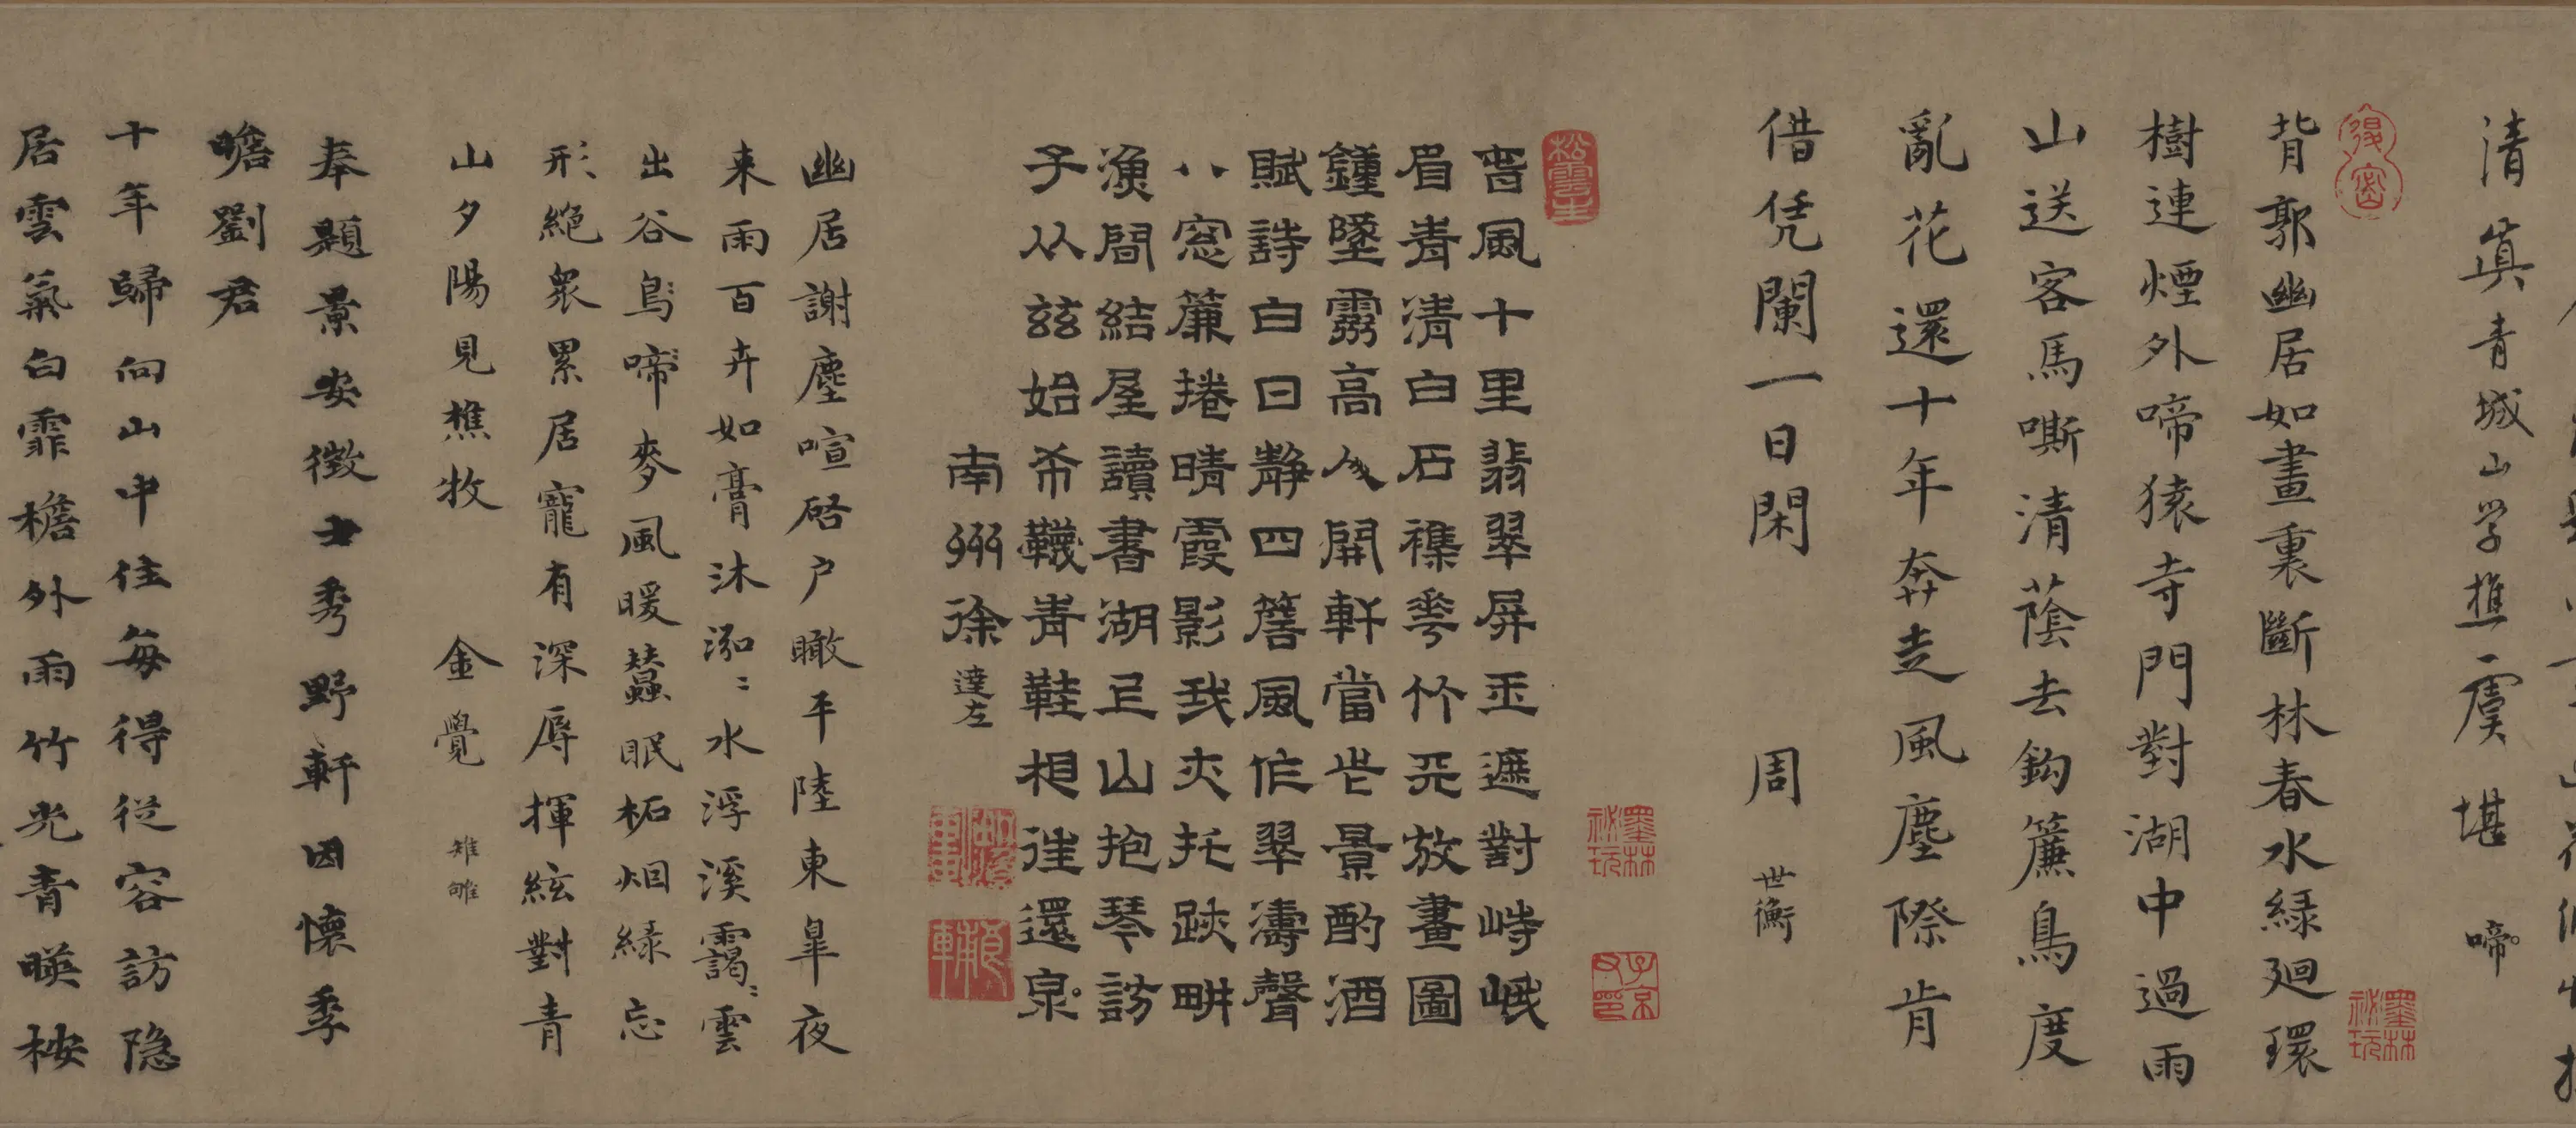 清真青城山学樵虞堪
背郭幽居如畫裏斷林春水緑廻環
樹連煙外啼猿寺門對湖中過雨
山送客馬嘶清蔭去鈎簾鳥度
亂花還十年奔走風塵際肯
借凭闌一日閑
周世衡
松雲生
十里翡翠屏玉遮對峙峨
眉青清白石襍華竹天放畫圖
鍾墜露高人開軒當世景酌酒
賦詩白日静四簷風作翠濤聲
八窓簾捲晴霞影我夾托跡畊
漁間結屋讀書湖上山抱琴訪
子从兹始希韈青鞋相徃還泉
南州徐達左
幽居謝塵喧啓户瞰平陸東皐夜
来雨百卉如膏沐泓〻水浮溪靄〻雲
出谷鳥啼麥風暖蠶眠柘烟緑忘
形絶衆累居寵有深辱揮絃對青
山夕陽見樵牧
金覺
奉題景安徴士秀野軒因懷季
瞻劉君
十年歸向山中住每得從容訪隐
居雲氣白霏檐外雨竹光青暎桉